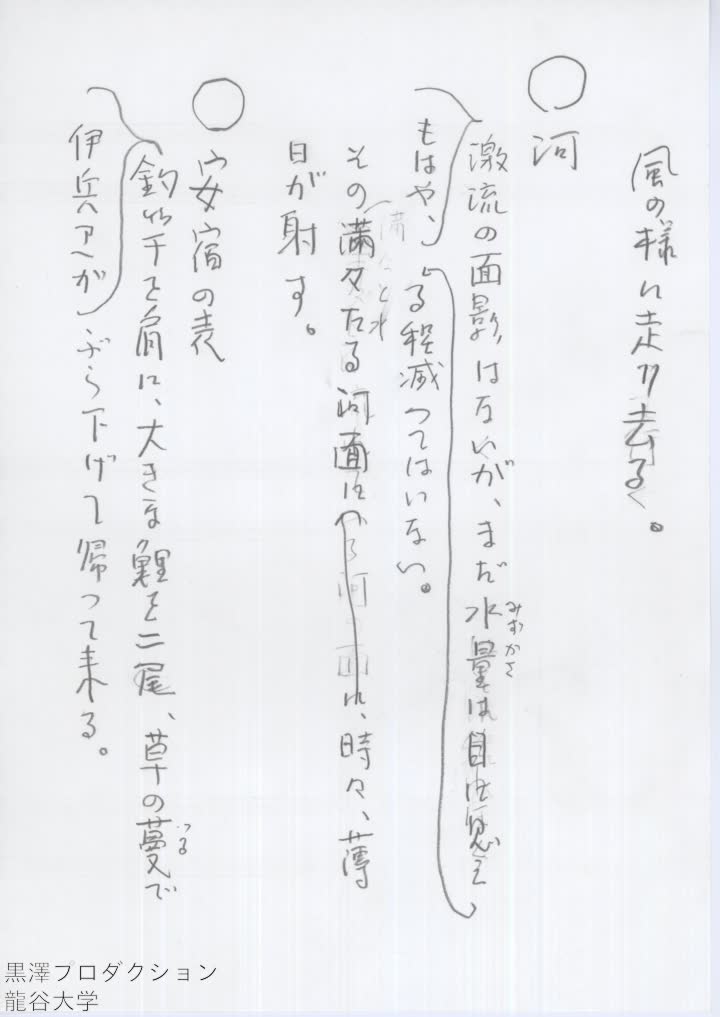 風の様に走り去る。
○河
激流の面影はないが、まだ水量は目に見え
みずかさ
る程減ってはいない。
もはや、
その満々たる河面に、時々、薄
日が射す。
○安宿の表
釣竿を肩に、大きな鯉を二尾、草の蔓で
つる
伊兵ヱが
ぶら下げて帰って来る。
黒澤プロダクション
龍谷大学